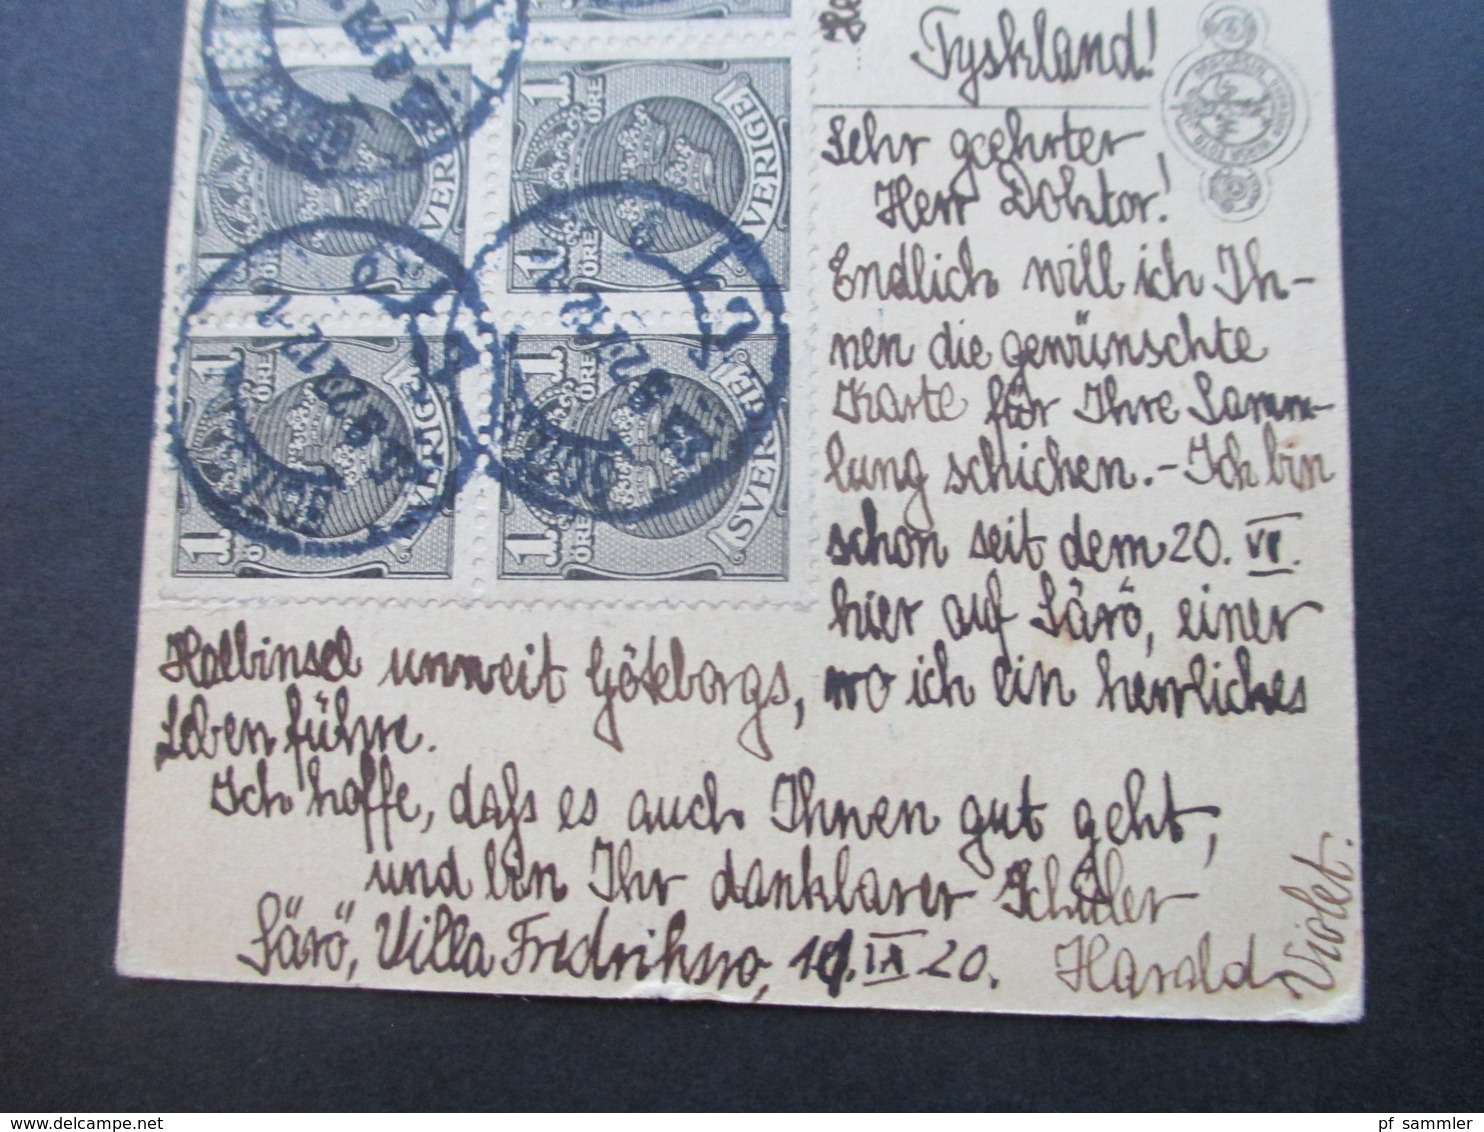 Tyskland!
Sehr geehrter
Herr Doktor!
Endlich will ich Ih-
nen die gewünschte
Karte för Ihre Samm-
lung schicken. - Ich bin
schon seit dem 20. VI.
hier auf Särö, einer
Halbinsel unweit Göteborgs, wo ich ein herrliches
Leben führe.
Ich hoffe, dafs es auch Ihnen gut geht,
und bin Ihr dankbarer Schüler
Särö, Villa Fredriksro, IX 20. Harald Violet.
1 ÖRE SVERIGE
1 ÖRE SVERIGE
1 ÖRE SVERIGE
1 ÖRE SVERIGE
delcampe.net
pf_sammler